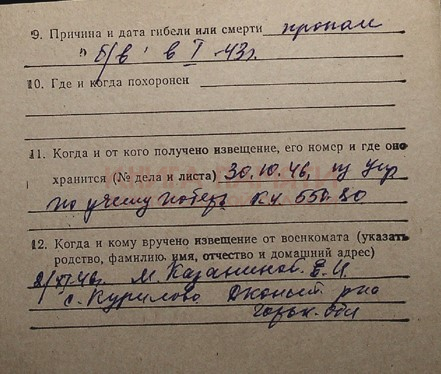 9. Причина и дата гибели или смерти пропал
"б/в" в I 43г.
10. Где и когда похоронен
11. Когда и от кого получено извещение, его номер и где оно
хранится (№ дела и листа) 30.10.46, из Упр
по учету потерь
12. Когда и кому вручено извещение от военкомата (указать
родство, фамилию, имя, отчество и домашний адрес)
М. Казаникова Е. И.
с. Курилово
Горьк. обл